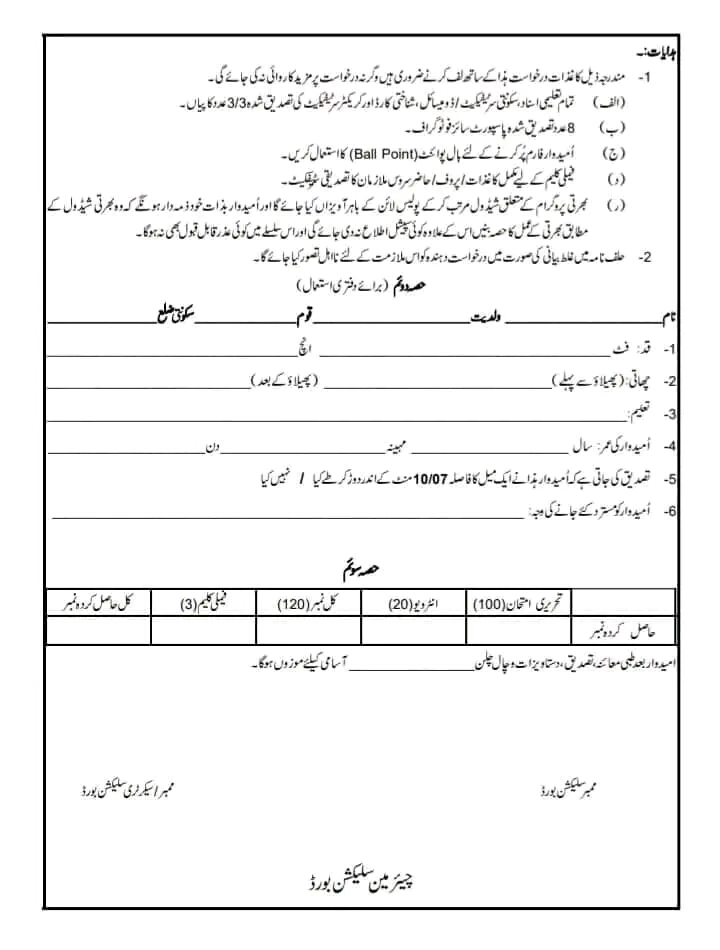 ہدایات:۔
1- مندرجہ ذیل کاغذات درخواست ہذا کے ساتھ لف کرنے ضروری ہیں وگرنہ درخواست پر مزید کاروائی نہ کی جائے گی۔
(الف) تمام تعلیمی اسناد، سکونتی سرٹیفکیٹ/ڈومیسائل، شناختی کارڈ اور کریکٹر سرٹیفکیٹ کی تصدیق شدہ 3/3 عدد کاپیاں۔
(ب) 8 عدد تصدیق شدہ پاسپورٹ سائز فوٹوگراف۔
(ج) اُمیدوار فارم پُر کرنے کے لئے بال پوائنٹ (Ball Point) کا استعمال کریں۔
(د) فیملی کلیم کے لیے مکمل کاغذات/پروف/حاضر سروس ملازمان کا تصدیقی سرٹیفکیٹ۔
(ر) بھرتی پروگرام کے متعلق شیڈول مرتب کر کے پولیس لائن کے باہر آویزاں کیا جائے گا اور اُمیدوار بذات خود ذمہ دار ہونگے کہ وہ بھرتی شیڈول کے
مطابق بھرتی کے عمل کا حصہ بنیں اس کے علاوہ کوئی سپیشل اطلاع نہ دی جائے گی اور اس سلسلے میں کوئی عذر قابل قبول بھی نہ ہوگا۔
2- حلف نامہ میں غلط بیانی کی صورت میں درخواست دہندہ کو اس ملازمت کے لئے نااہل تصور کیا جائے گا۔
حصہ دوئم (برائے دفتری استعمال)
نام____________________ ولدیت____________________ قوم____________________ سکونتی ضلع____________________
1- قد: فٹ____________________ انچ____________________
2- چھاتی: (پھیلاؤ سے پہلے)____________________ (پھیلاؤ کے بعد)____________________
3- تعلیم:____________________
4- اُمیدوار کی عمر: سال____________________ مہینہ____________________ دن____________________
5- تصدیق کی جاتی ہے کہ اُمیدوار ہذا نے ایک میل کا فاصلہ 10/07 منٹ کے اندر دوڑ کر طے کیا / نہیں کیا
6- اُمیدوار کو مسترد کئے جانے کی وجہ:____________________
حصہ سوئم
تحریری امتحان (100) انٹرویو (20) کل نمبر (120) فیملی کلیم (3) کل حاصل کردہ نمبر
حاصل کردہ نمبر
امیدوار بعد طبی معائنہ، تصدیق، دستاویزات و چال چلن____________________ آسامی کیلئے موزوں ہوگا۔
ممبر سلیکشن بورڈ ممبر/سیکرٹری سلیکشن بورڈ
چیئرمین سلیکشن بورڈ